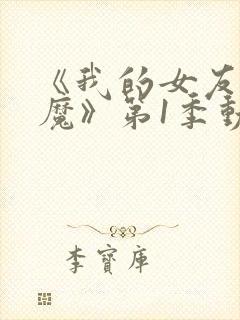 《我的女友
魔》第1季動
李寶庫